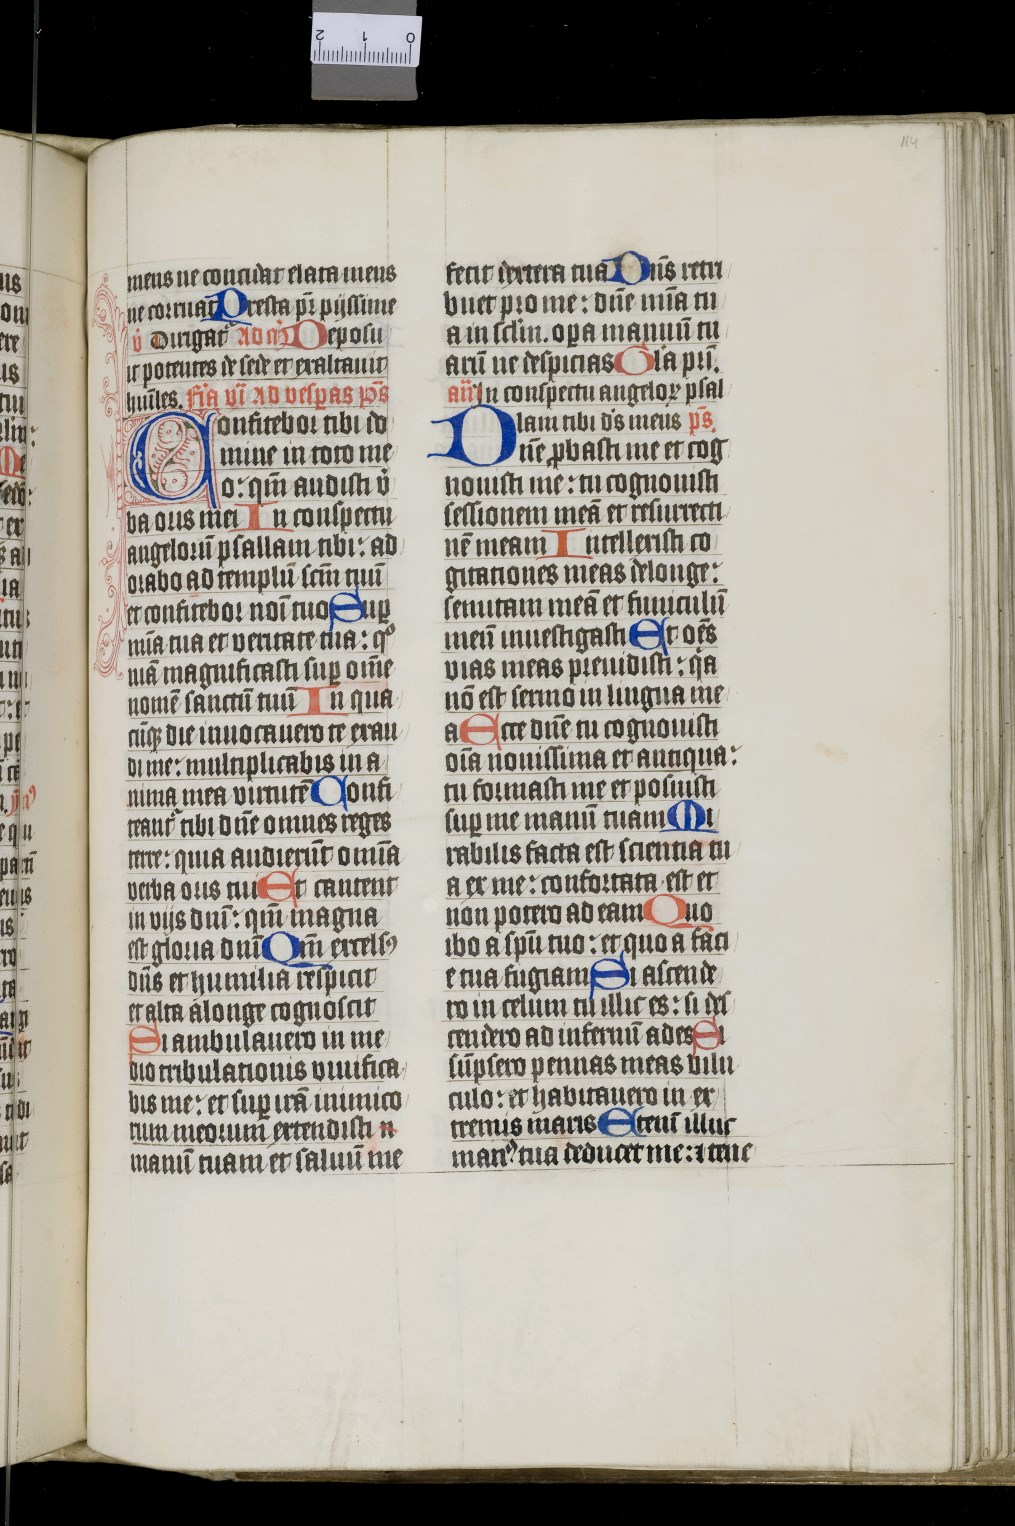 114
meus ne concidat elata meus
ne corruat Presta pr̄ pijssime
v̄ Dirigat᷑ Ad m̄ Deposu
it potentes de sede et exaltauit
hūiles. Fr̄ia vi᷑ Ad vesp̄as ps̄
Confitebor tibi do
mine in toto me
o: qm̄ audisti v̄
ba oris mei In conspectu
angelorū psallam tibi: ad
orabo ad templū scm̄ tuū
et confitebor noi᷑ tuo Sup̲
mi᷑a tua et veritate tua: qº
niā magnificasti sup̲ om̄e
nomē sanctū tuū In qua
cūq̨ die inuocauero te exau
di me: multiplicabis in a
nima mea virtutē Confi
teant᷑ tibi dn̄e omnes reges
terre: quia audierūt omīa
verba oris tui Et cantent
in vijs dn̄i: qm̄ magna
est gloria dn̄i Qm̄ excelsꝰ
dn̄s et humilia respicit
et alta alonge cognoscit
Si ambulauero in me
dio tribulationis viuifica
bis me: et sup̲ irā inimico
rum meorum extendisti
manū tuam et saluū me
fecit dextera tua Dn̄s retri
buet pro me: dn̄e mi᷑a tu
a in sclm̄. op̲a manuū tu
arū ne despicias Gl̄a pri᷑.
an̄ In conspectu angeloꝝ psal
lam tibi ds̄ meus ps̄.
Dn̄e ꝓbasti me et cog
nouisti me: tu cognouisti
sessionem meā et resurrecti
nē meam Intellexisti co
gitationes meas delonge:
semitam meā et funiculū
meū inuestigasti Et oēs
vias meas preuidisti: qa
nō est sermo in lingua me
a Ecce dn̄e tu cognouisti
oi᷑a nouissima et antiqua:
tu formasti me et posuisti
sup̲ me manū tuam Mi
rabilis facta est scientia tu
a ex me: confortata est et
non potero ad eam Quo
ibo a spū tuo: et quo a faci
e tua fugiam Si ascende
ro in celum tu illic es: si des
cendero ad infernū ades Si
sūpsero pennas meas dilu
culo: et habitauero in ex
tremis maris Etenī illuc
manꝰ tua deducet me: ⁊ tene